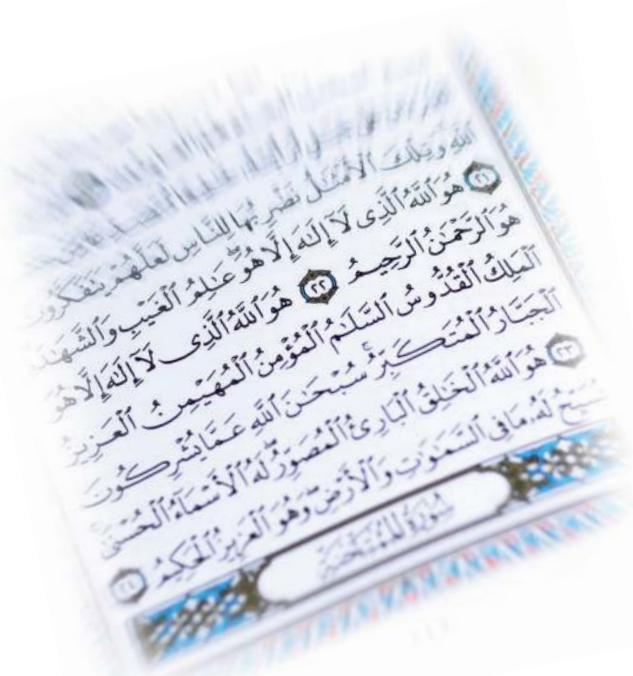 ٱللَّهِ وَتِلْكَ ٱلْأَمْثَٰلُ نَضْرِبُهَا لِلنَّاسِ لَعَلَّهُمْ يَتَفَكَّرُونَ
﴿٢١﴾ هُوَ ٱللَّهُ ٱلَّذِى لَآ إِلَٰهَ إِلَّا هُوَ عَٰلِمُ ٱلْغَيْبِ وَٱلشَّهَٰدَةِ
هُوَ ٱلرَّحْمَٰنُ ٱلرَّحِيمُ ﴿٢٢﴾ هُوَ ٱللَّهُ ٱلَّذِى لَآ إِلَٰهَ إِلَّا هُوَ
ٱلْمَلِكُ ٱلْقُدُّوسُ ٱلسَّلَٰمُ ٱلْمُؤْمِنُ ٱلْمُهَيْمِنُ ٱلْعَزِيزُ
ٱلْجَبَّارُ ٱلْمُتَكَبِّرُ سُبْحَٰنَ ٱللَّهِ عَمَّا يُشْرِكُونَ
﴿٢٣﴾ هُوَ ٱللَّهُ ٱلْخَٰلِقُ ٱلْبَارِئُ ٱلْمُصَوِّرُ لَهُ ٱلْأَسْمَآءُ ٱلْحُسْنَىٰ
يُسَبِّحُ لَهُۥ مَا فِى ٱلسَّمَٰوَٰتِ وَٱلْأَرْضِ وَهُوَ ٱلْعَزِيزُ ٱلْحَكِيمُ ﴿٢٤﴾
سُورَةُ ٱلْمُمْتَحِنَةِ